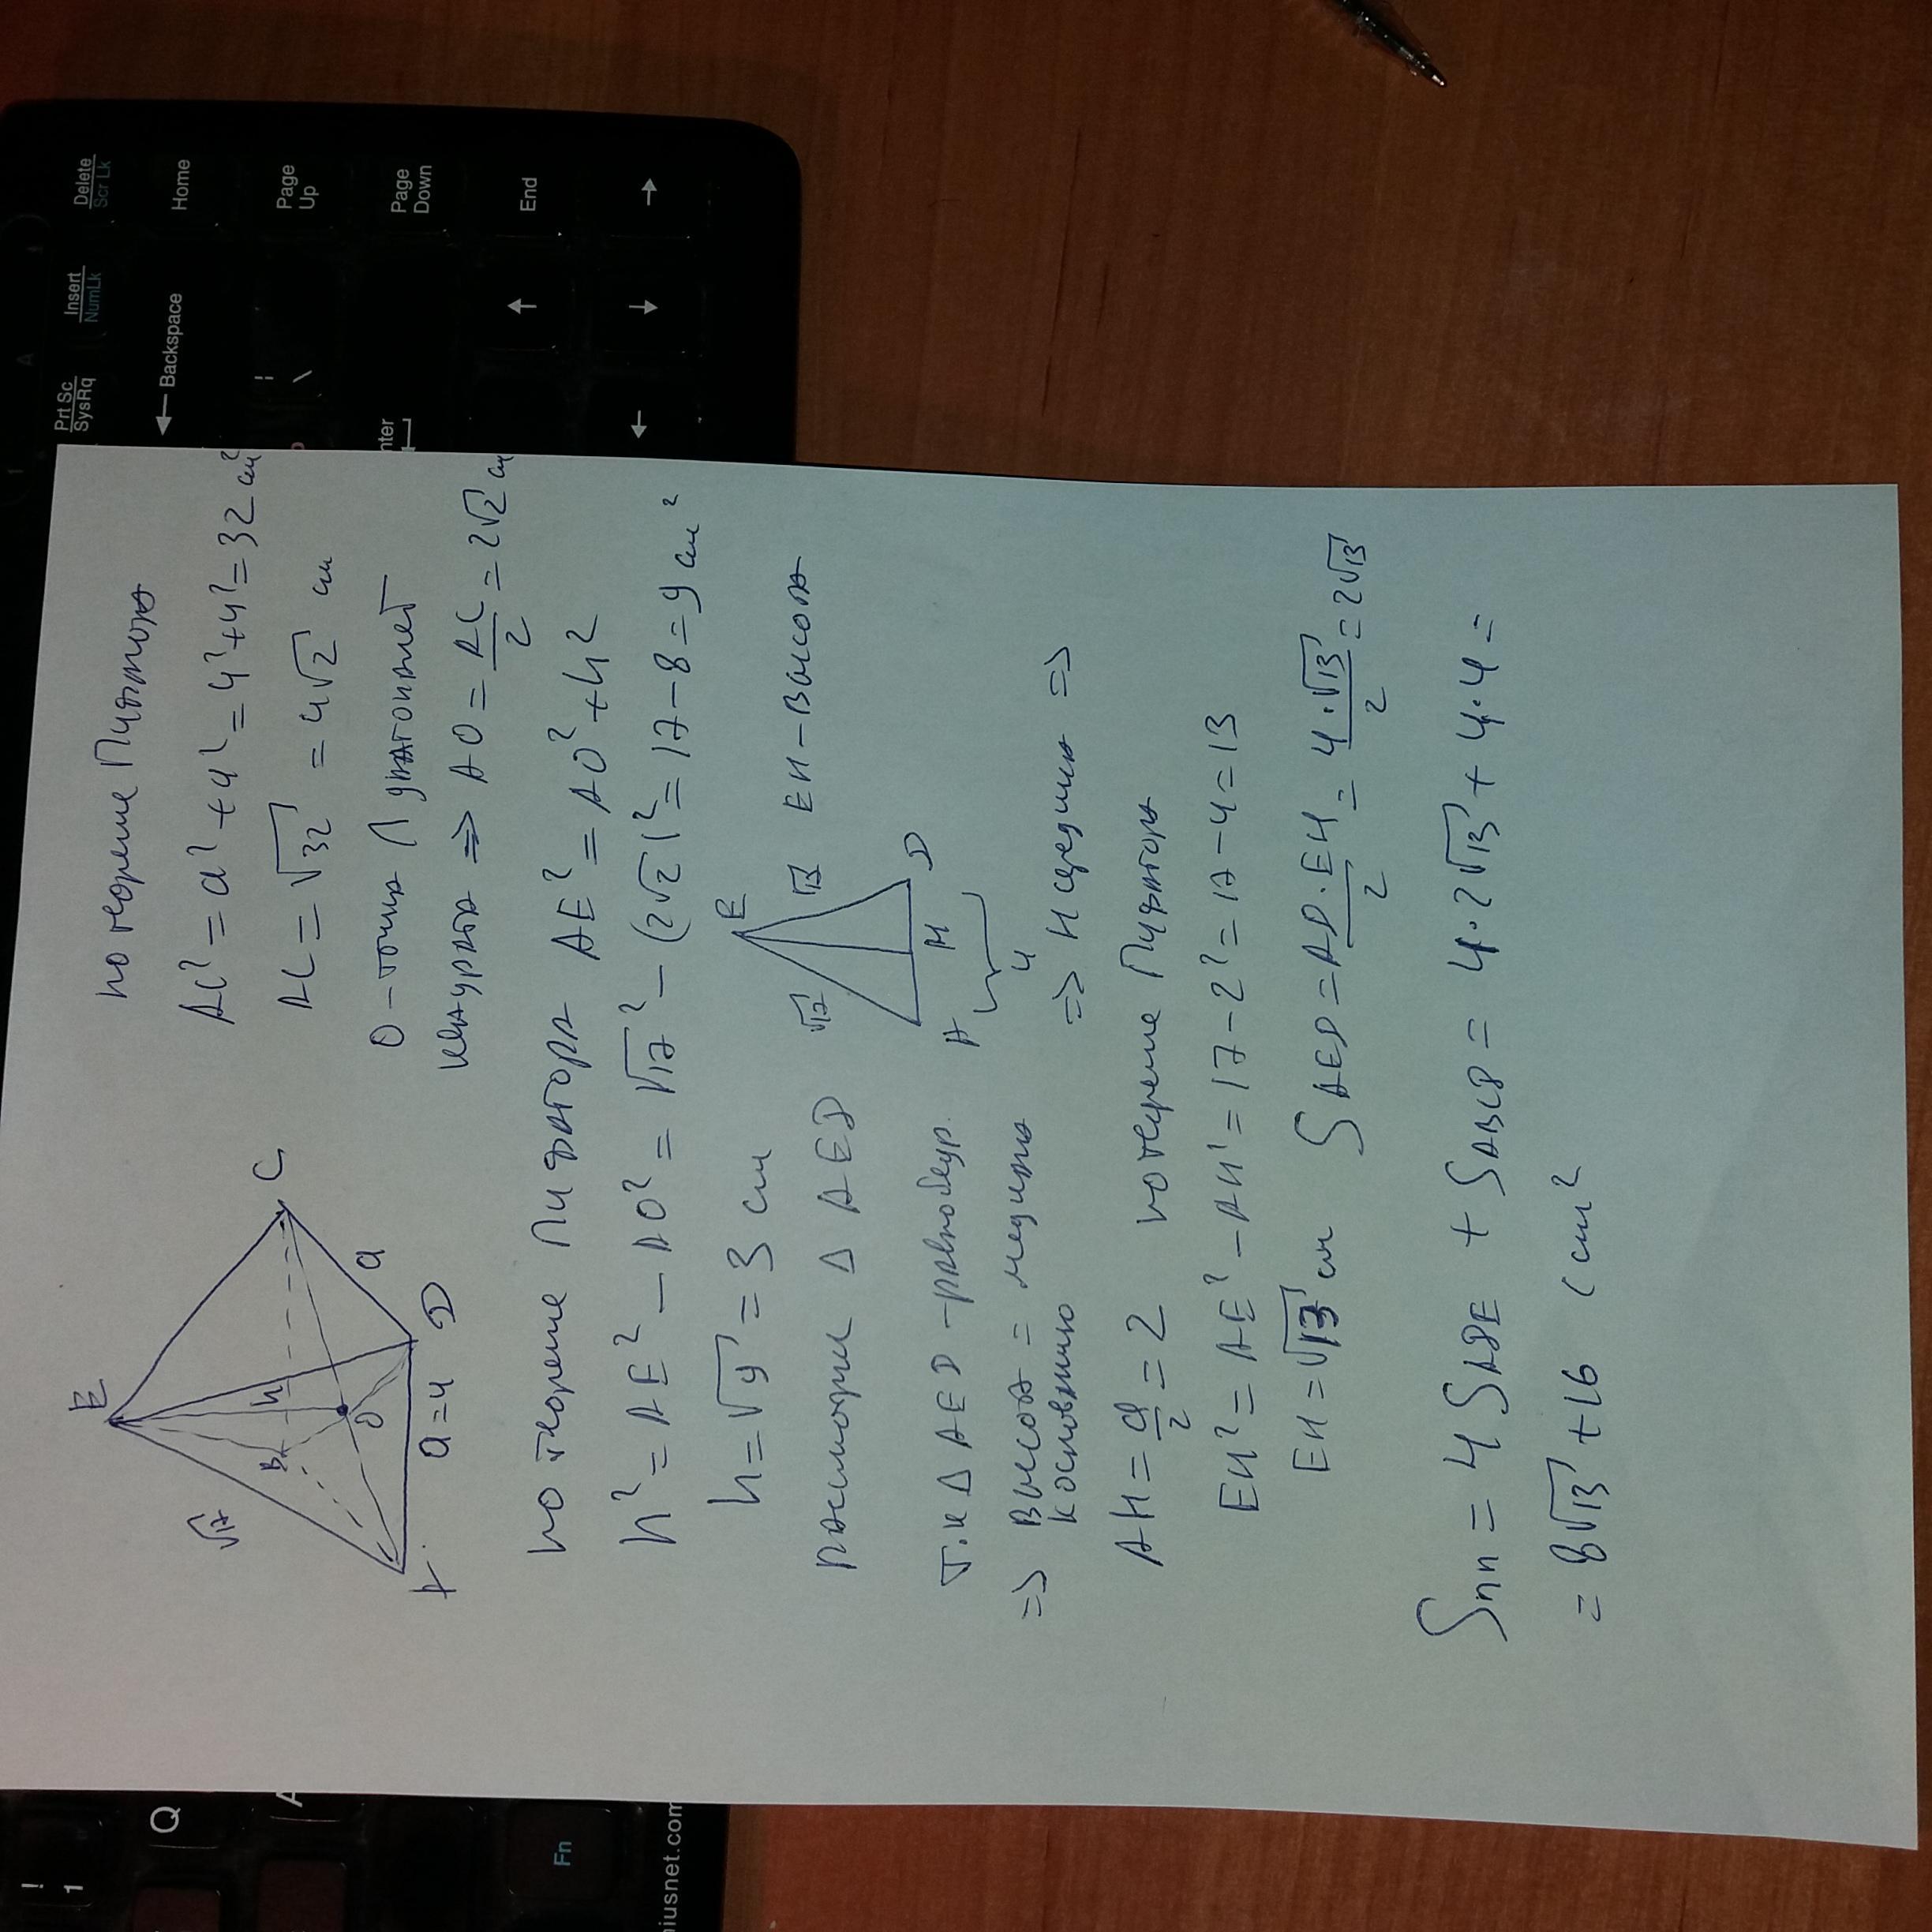 по теореме Пифагора
AC² = a² + a² = 4² + 4² = 32 см²
AC = √32 = 4√2 см
O - точка Π диагоналей
квадрата ⇒ AO = AC/2 = 2√2 см
E
√17
B
h
C
O
a
A
a=4
D
по теореме Пифагора AE² = AO² + h²
h² = AE² - AO² = √17² - (2√2)² = 17 - 8 = 9 см²
h = √9 = 3 см
рассмотрим Δ AED
E
√17
√17
EH - высота
A
H
D
4
т.к Δ AED - равнобедр.
⇒ высота = медиана
к основанию
⇒ H середина ⇒
AH = a/2 = 2 по теореме Пифагора
EH² = AE² - AH² = 17 - 2² = 17 - 4 = 13
EH = √13 см S AED = AD·EH/2 = 4·√13/2 = 2√13
Sпп = 4 S ADE + S ABCD = 4·2√13 + 4·4 =
= 8√13 + 16 (см²
Delete
Scr Lk
Insert
NumLk
Prt Sc
SysRq
Home
Backspace
Page
Up
Page
Down
End
nter
!
1
Q
A
Fn
iusnet.com